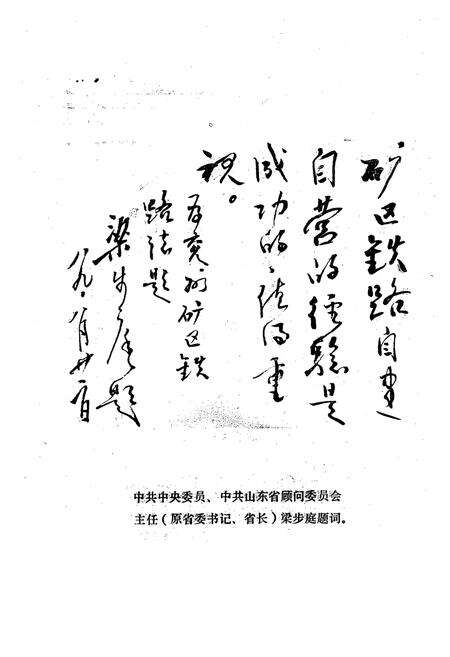 矿区铁路自建
自营的经验是
成功的，值得重
视。
为兖州矿区铁
路志题
梁步庭题
八九·八月廿二日
中共中央委员、中共山东省顾问委员会
主任（原省委书记、省长）梁步庭题词。